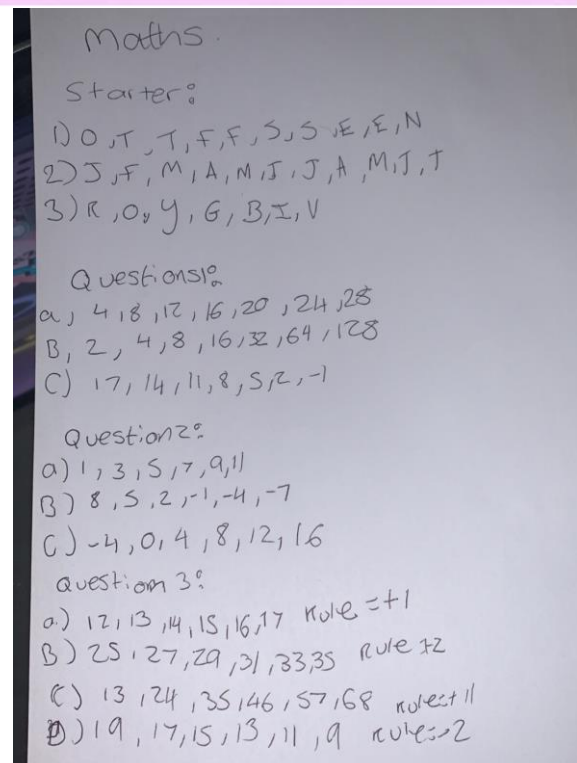 Maths.
Starter:
1) O, T, T, F, F, S, S, E, E, N
2) J, F, M, A, M, J, J, A, M, J, J
3) R, O, Y, G, B, I, V
Questions1:
a, 4, 8, 12, 16, 20, 24, 28
B, 2, 4, 8, 16, 32, 64, 128
C) 17, 14, 11, 8, 5, 2, -1
Question2:
a) 1, 3, 5, 7, 9, 11
B) 8, 5, 2, -1, -4, -7
C) -4, 0, 4, 8, 12, 16
Question 3:
a.) 12, 13, 14, 15, 16, 17 Rule = +1
B) 25, 27, 29, 31, 33, 35 Rule +2
C) 13, 24, 35, 46, 57, 68 rule=+11
D) 19, 17, 15, 13, 11, 9 rule=-2